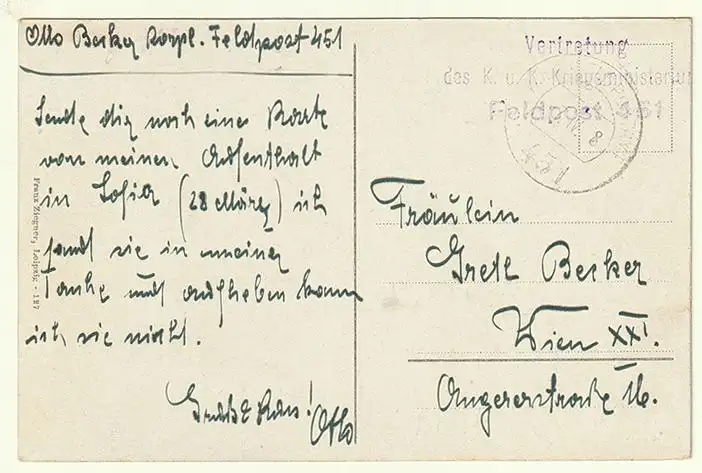 Otto Becker Korpl. Feldpost 451
Sende dir noch eine Karte
von meinen Aufenthalt
in Sofia (28 März) ich
fand sie in meiner
Tasche und aufheben kann
ich sie nicht.
Gruß & Kuss!
Otto
Franz Ziegner, Leipzig - 127
Vertretung
des K. u. K. Kriegsministerium
Feldpost 451
451
Fräulein
Gretl Becker
Wien XXI.
Angererstraße 16.